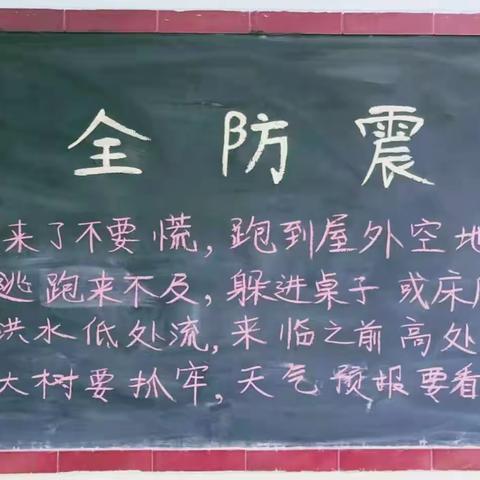 全防震
来了不要慌,跑到屋外空地
逃跑来不及,躲进桌子或床
洪水低处流,来临之前高处
大树要抓牢,天气预报要看